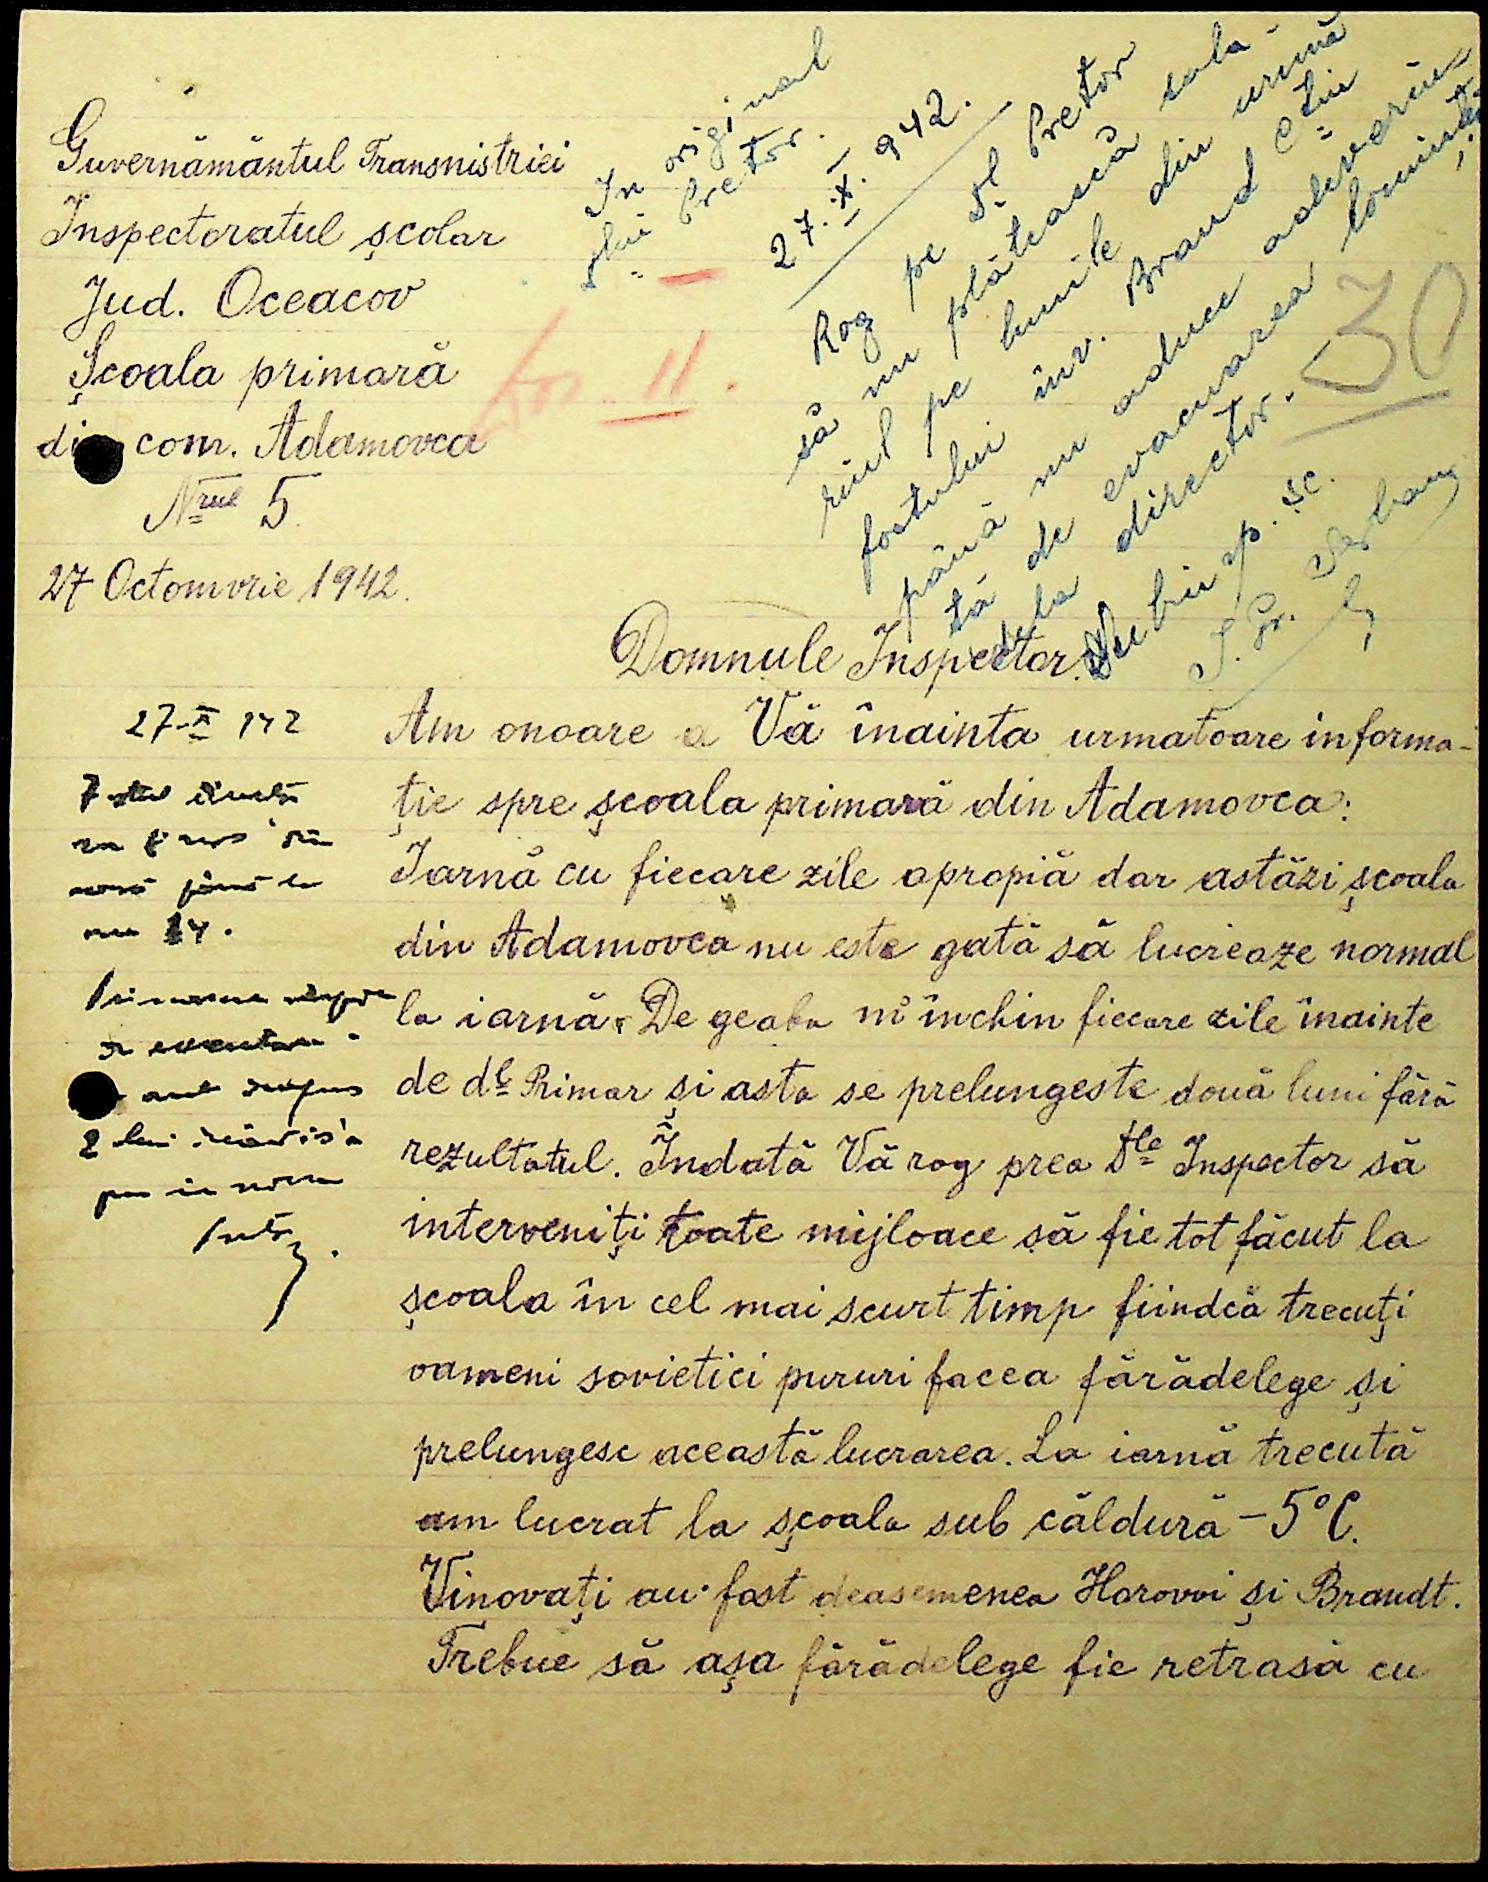 Guvernământul Transnistriei
Inspectoratul școlar
Jud. Oceacov
Școala primară
din com. Adamovca
Nrul 5.
27 Octomvrie 1942.
In original
dlui Pretor.
27.X.942.
Rog pe dl Pretor
să nu plătească sala-
riul pe lunile din urmă
fostului înv. Brand Ctin
până nu aduce adeverin-
tă de evacuarea locuintei
dela director.
Subinsp. șc.
II.
30
Domnule Inspector.
Am onoare a Vă înainta urmatoare informa-
ție spre școala primară din Adamovca:
Iarnă cu fiecare zile apropiă dar astăzi școala
din Adamovca nu este gată să lucrieaze normal
la iarnă. De geaba m închin fiecare zile înainte
de dl Primar și asta se prelungeste două luni fără
rezultatul. Îndată Vă rog prea Dle Inspector să
interveniți toate mijloace să fie tot făcut la
școala în cel mai scurt timp fiindcă trecuți
oameni sovietici pururi facea fărădelege și
prelungesc această lucrarea. La iarnă trecută
am lucrat la școala sub căldură -5°C.
Vinovați au fost deasemenea Horovoi și Brandt.
Trebue să așa fărădelege fie retrasă cu
27-X 942
până la